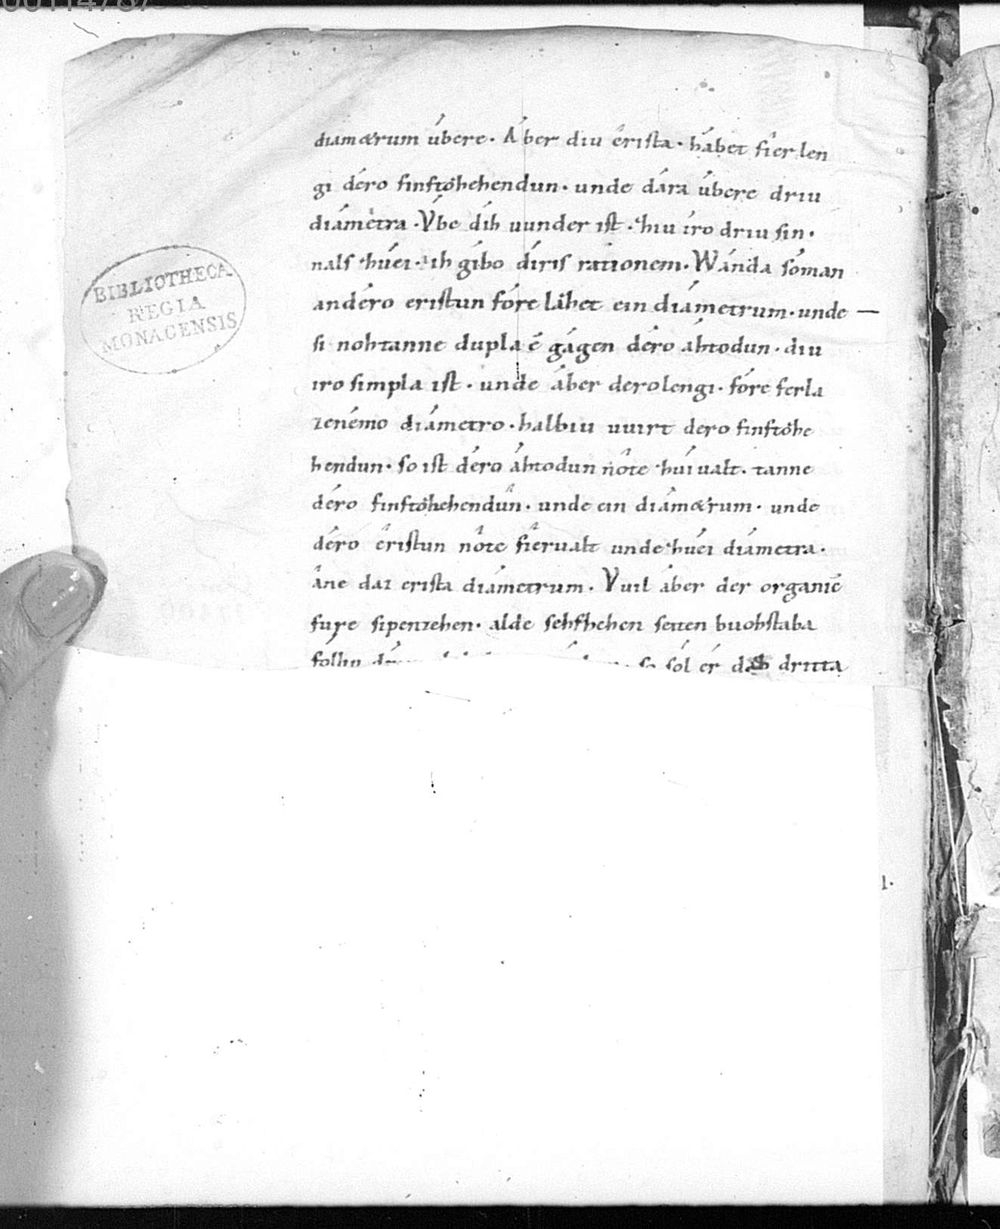 00114787
diametrum úbere. Aber diu érista. hábet fier len
gi déro finftóhehendun. unde dára úbere driu
diámetra. Vbe díh uunder ist. hiu íro driu sin.
nals huéi. ih gíbo díris rationem. Wánda sóman
andéro eristun fóre lâhet ein diámetrum. unde —
si nohtanne dupla ē gágen déro áhtodun. diu
iro simpla ist. unde áber dero lengi. fóre ferla
zenémo diámetro. halbiu uuirt dero finftóhe
hendun. so ist déro áhtodun nôte huiualt. tanne
déro finftóhehendûn. unde ein diámetrum. unde
déro êristun nôte fîerualt unde huéi diámetra.
âne daz erista diámetrum. Vuil áber der organicē
fure sipenzehen. alde sehshehen seiten buohstaba
so sól ér daz dritta
BIBLIOTHECA
REGIA
MONACENSIS